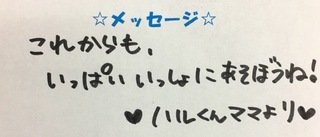 ☆メッセージ☆
これからも、
いっぱい いっしょに あそぼうね!
♥ ハルくんママより ♥